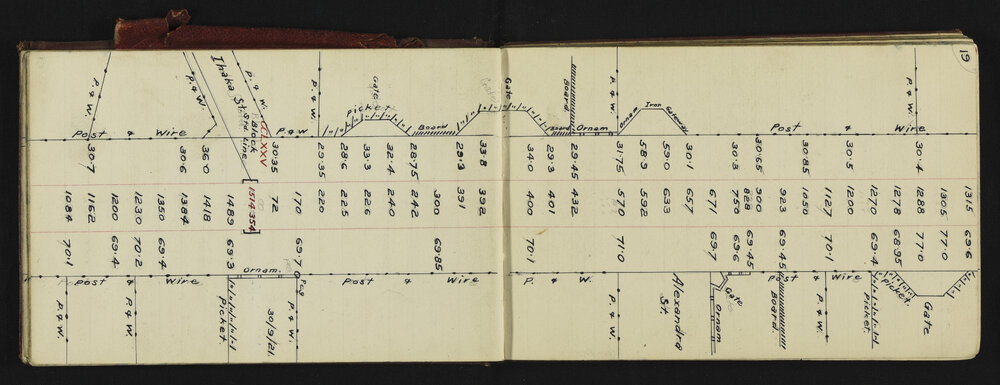 19
P. & W.
Post & Wire
1315 69.6
1305 77.0
30.4 1288 77.0
1278 68.95
1270 69.4
30.5 1200
1127 70.1
30.85 1050
923 69.45
30.65 900 69.45
828
30.8 750 69.6
671 69.7
30.1 657
59.0 633
58.9 592
31.75 570 71.0
29.45 432
29.3 401
34.0 400 70.1
Gate
Picket
Picket.
Post & Wire
P. & W.
Board.
Gate
Ornam
Alexandra
St.
P. & W.
Iron
Gates
Ornam
P. & W.
Ornam
Board
Board
Gate
33.8 392
29.3 391
300 69.85
28.75 242
32.4 240
33.3 226
28.6 225
29.35 220
170 69.7
30.35 72
[1514.354]
1489 69.3
36.0 1418
30.6 1384
1350 69.4
1230 70.2
1200 69.4
30.7 1162
1084 70.1
Board
Gate
Picket
P. & W.
P & W
P. & W.
CLXXV
Block
Std. line
Ihaka St.
P. & W.
Post & Wire
P. & W.
Post & Wire
Peg
P. & W.
30/9/21.
Ornam.
Picket
P. & W.
P. & W.